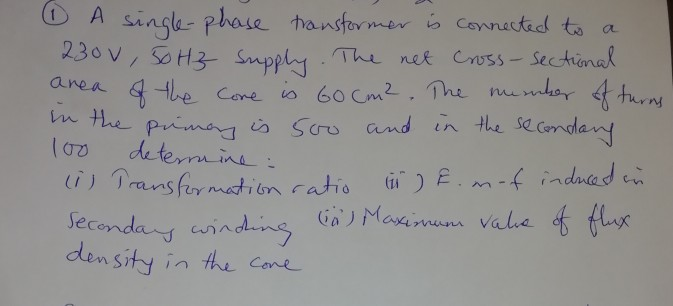 ① A single-phase transformer is connected to a
230V, 50Hz supply. The net cross-sectional
area of the core is 60cm². The number of turns
in the primary is 500 and in the secondary
100 determine:
(i) Transformation ratio (ii) E.m-f induced in
secondary winding (iii) Maximum value of flux
density in the core